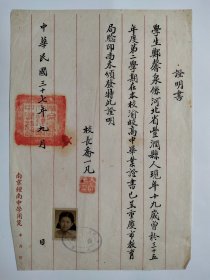 證明書
學生鄭馨泉係河北省豐潤縣人現年十九歲曾於三十五
年度第二學期在本校渝校高中畢業證書已呈重慶市教育
局驗印尚未頒發特此證明
校長喬一凡
中華民國三十七年九月 日
南京鍾南中學用箋